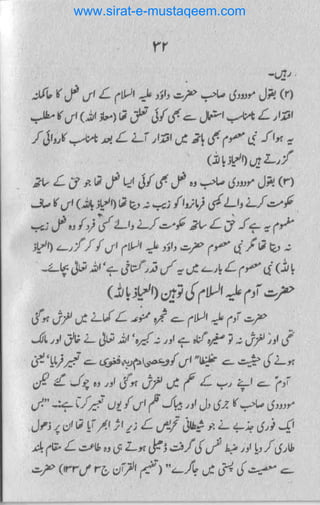 www.sirat-e-mustaqeem.com
۳۲
رہیں۔
(۲) بقول مودودی صاحب حضرت داؤد علیہ السلام کے اس فعل کا حاکمانہ
اقتدار کے نامناسب استعمال سے بھی کوئی تعلق تھا (معاذ اللہ) اس کا مطلب
یہ ہوا کہ نبی معصوم بھی ہاتھ میں اقتدار آنے کے بعد نامناسب کاروائی کر
گزرتے ہیں (العیاذ باللہ)
(۳) بقول مودودی صاحب وہ فعل بھی کوئی ایسا فعل تھا جو حق کے ساتھ
حکومت کرنے والے کسی فرمانروا کو زیب نہ دیتا تھا (العیاذ باللہ) اس کا صاف
مفہوم یہ ہے کہ حق کے ساتھ حکومت کرنے والے کسی فرد کو جو فعل زیب
نہ دیتا تھا مگر نبی معصوم حضرت داؤد علیہ السلام اس کو کر گزرے (العیاذ
باللہ) نبی معصوم کے بارے میں یہ کس قدر گستاخی ہے، اللہ تعالیٰ بچائے۔
حضرت آدم علیہ السلام کی توہین (العیاذ باللہ)
حضرت آدم علیہ السلام سے شجرہ ممنوعہ کے کھانے میں لغزش ہوگئی
تھی اور یہ لغزش نہ تو صغیرہ گناہ ہے اور نہ کبیرہ، اللہ تعالیٰ نے خالق اور مالک
ہونے کی حیثیت سے اس کو وعصی ادم ربه فغوی سے تعبیر فرمایا، یعنی
آدم سے اپنے رب کے حکم میں لغزش ہوگئی اور وہ چوک گئے لیکن
مودودی صاحب کا جری دل اور بیباک قلم اس کو یوں تعبیر کرتا ہے۔ "بس
ایک فوری جذبے نے جو شیطانی تحریص کے زیر اثر ابھر آیا تھا ان پر ذہول
طاری کر دیا اور ضبط نفس کی گرفت ڈھیلی ہوتے ہی وہ طاعت کے مقام بلند
سے معصیت کی پستی میں جاگرے" (تفہیم القرآن ج۳ ص۱۳۳) حضرت